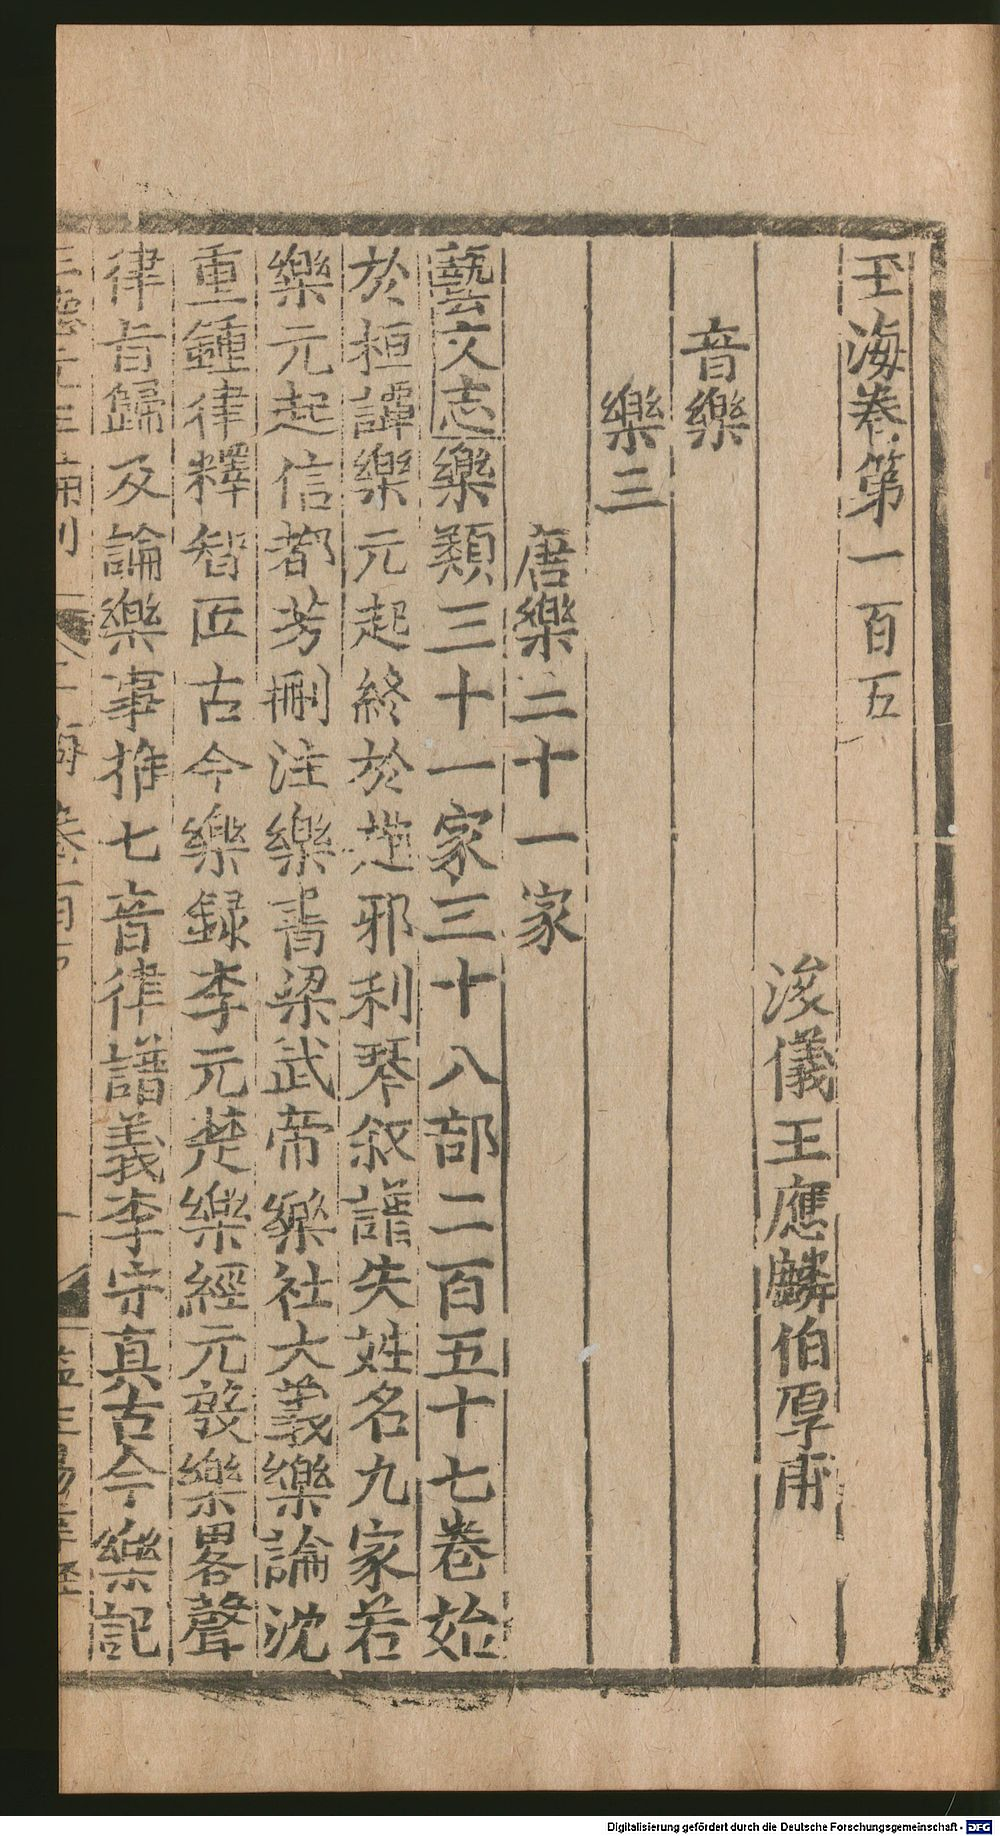 玉海卷第一百五
浚儀王應麟伯厚甫
音樂
樂三
唐樂二十一家
藝文志樂類三十一家三十八部二百五十七卷始
於桓譚樂元起終於趙邪利琴叙譜失姓名九家若
樂元起信都芳刪注樂書梁武帝樂社大義樂論沈
重鍾律釋智匠古今樂録李元楚樂經元殷樂畧聲
律旨歸及論樂事推七音律譜義李守真古今樂記
Digitalisierung gefördert durch die Deutsche Forschungsgemeinschaft - DFG